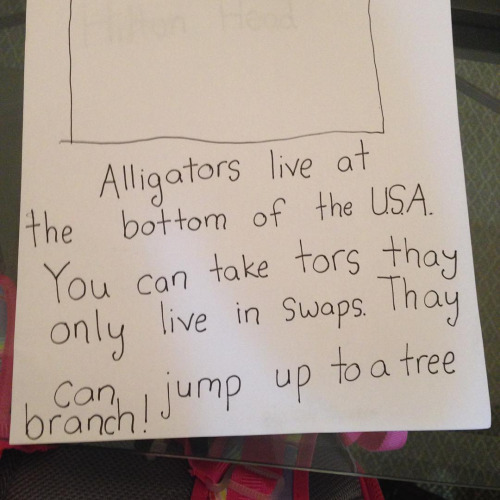 Hilton Head
Alligators live at
the bottom of the U.S.A.
You can take tors thay
only live in swaps. Thay
can jump up to a tree
branch!